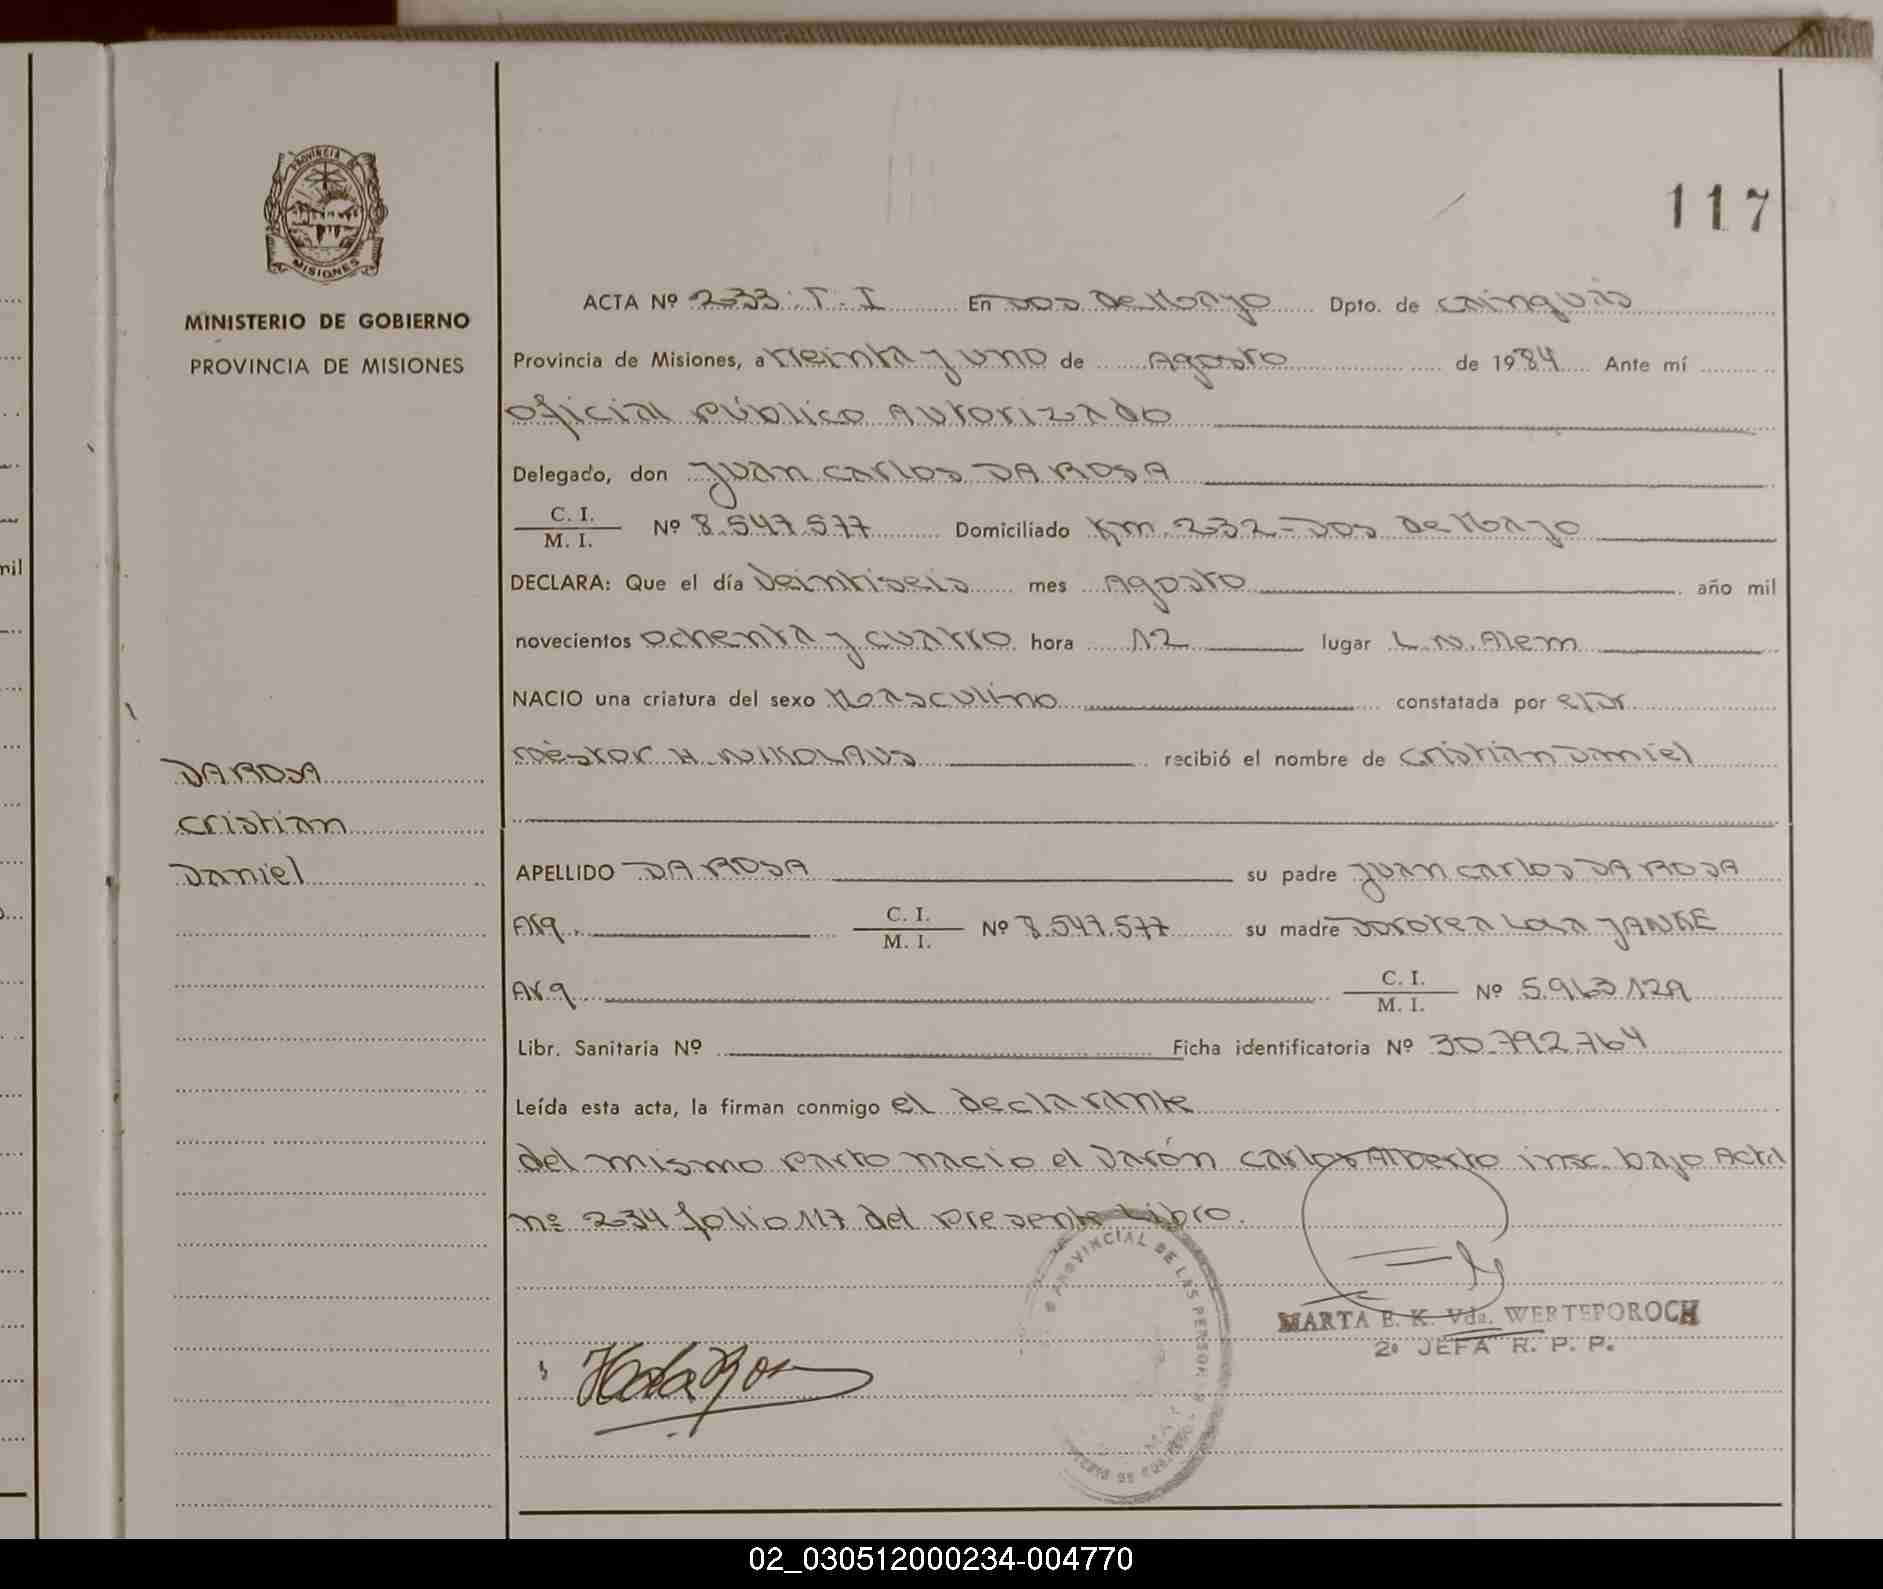 117
PROVINCIA DE
MISIONES
MINISTERIO DE GOBIERNO
PROVINCIA DE MISIONES
DA ROSA
Cristian
Daniel
ACTA Nº 233. T. I En Dos de Mayo Dpto. de Cainguás
Provincia de Misiones, a treinta y uno de Agosto de 1984 Ante mí
oficial Público Autorizado
Delegado, don Juan Carlos DA ROSA
C. I. / M. I. Nº 8.547.577 Domiciliado Km. 232 - Dos de Mayo
DECLARA: Que el día Veintiseis mes Agosto año mil
novecientos ochenta y cuatro hora 12 lugar L. N. Alem
NACIO una criatura del sexo Masculino constatada por el Dr.
Néstor H. NIKOLAUS recibió el nombre de Cristian Daniel
APELLIDO DA ROSA su padre Juan Carlos DA ROSA
Arg. C. I. / M. I. Nº 8.547.577 su madre Dorotea JANKE
Arg. C. I. / M. I. Nº
Libr. Sanitaria Nº Ficha identificatoria Nº 30.792.764
Leída esta acta, la firman conmigo el declarante
del mismo parto nacio el Varón Carlos Alberto insc. bajo Acta
nº 234 folio 117 del presente Libro.
PROVINCIAL DE LAS PERSON
MARTA E. K. Vda. WERTEPOROCH
2º JEFA R. P. P.
mil
02_030512000234-004770